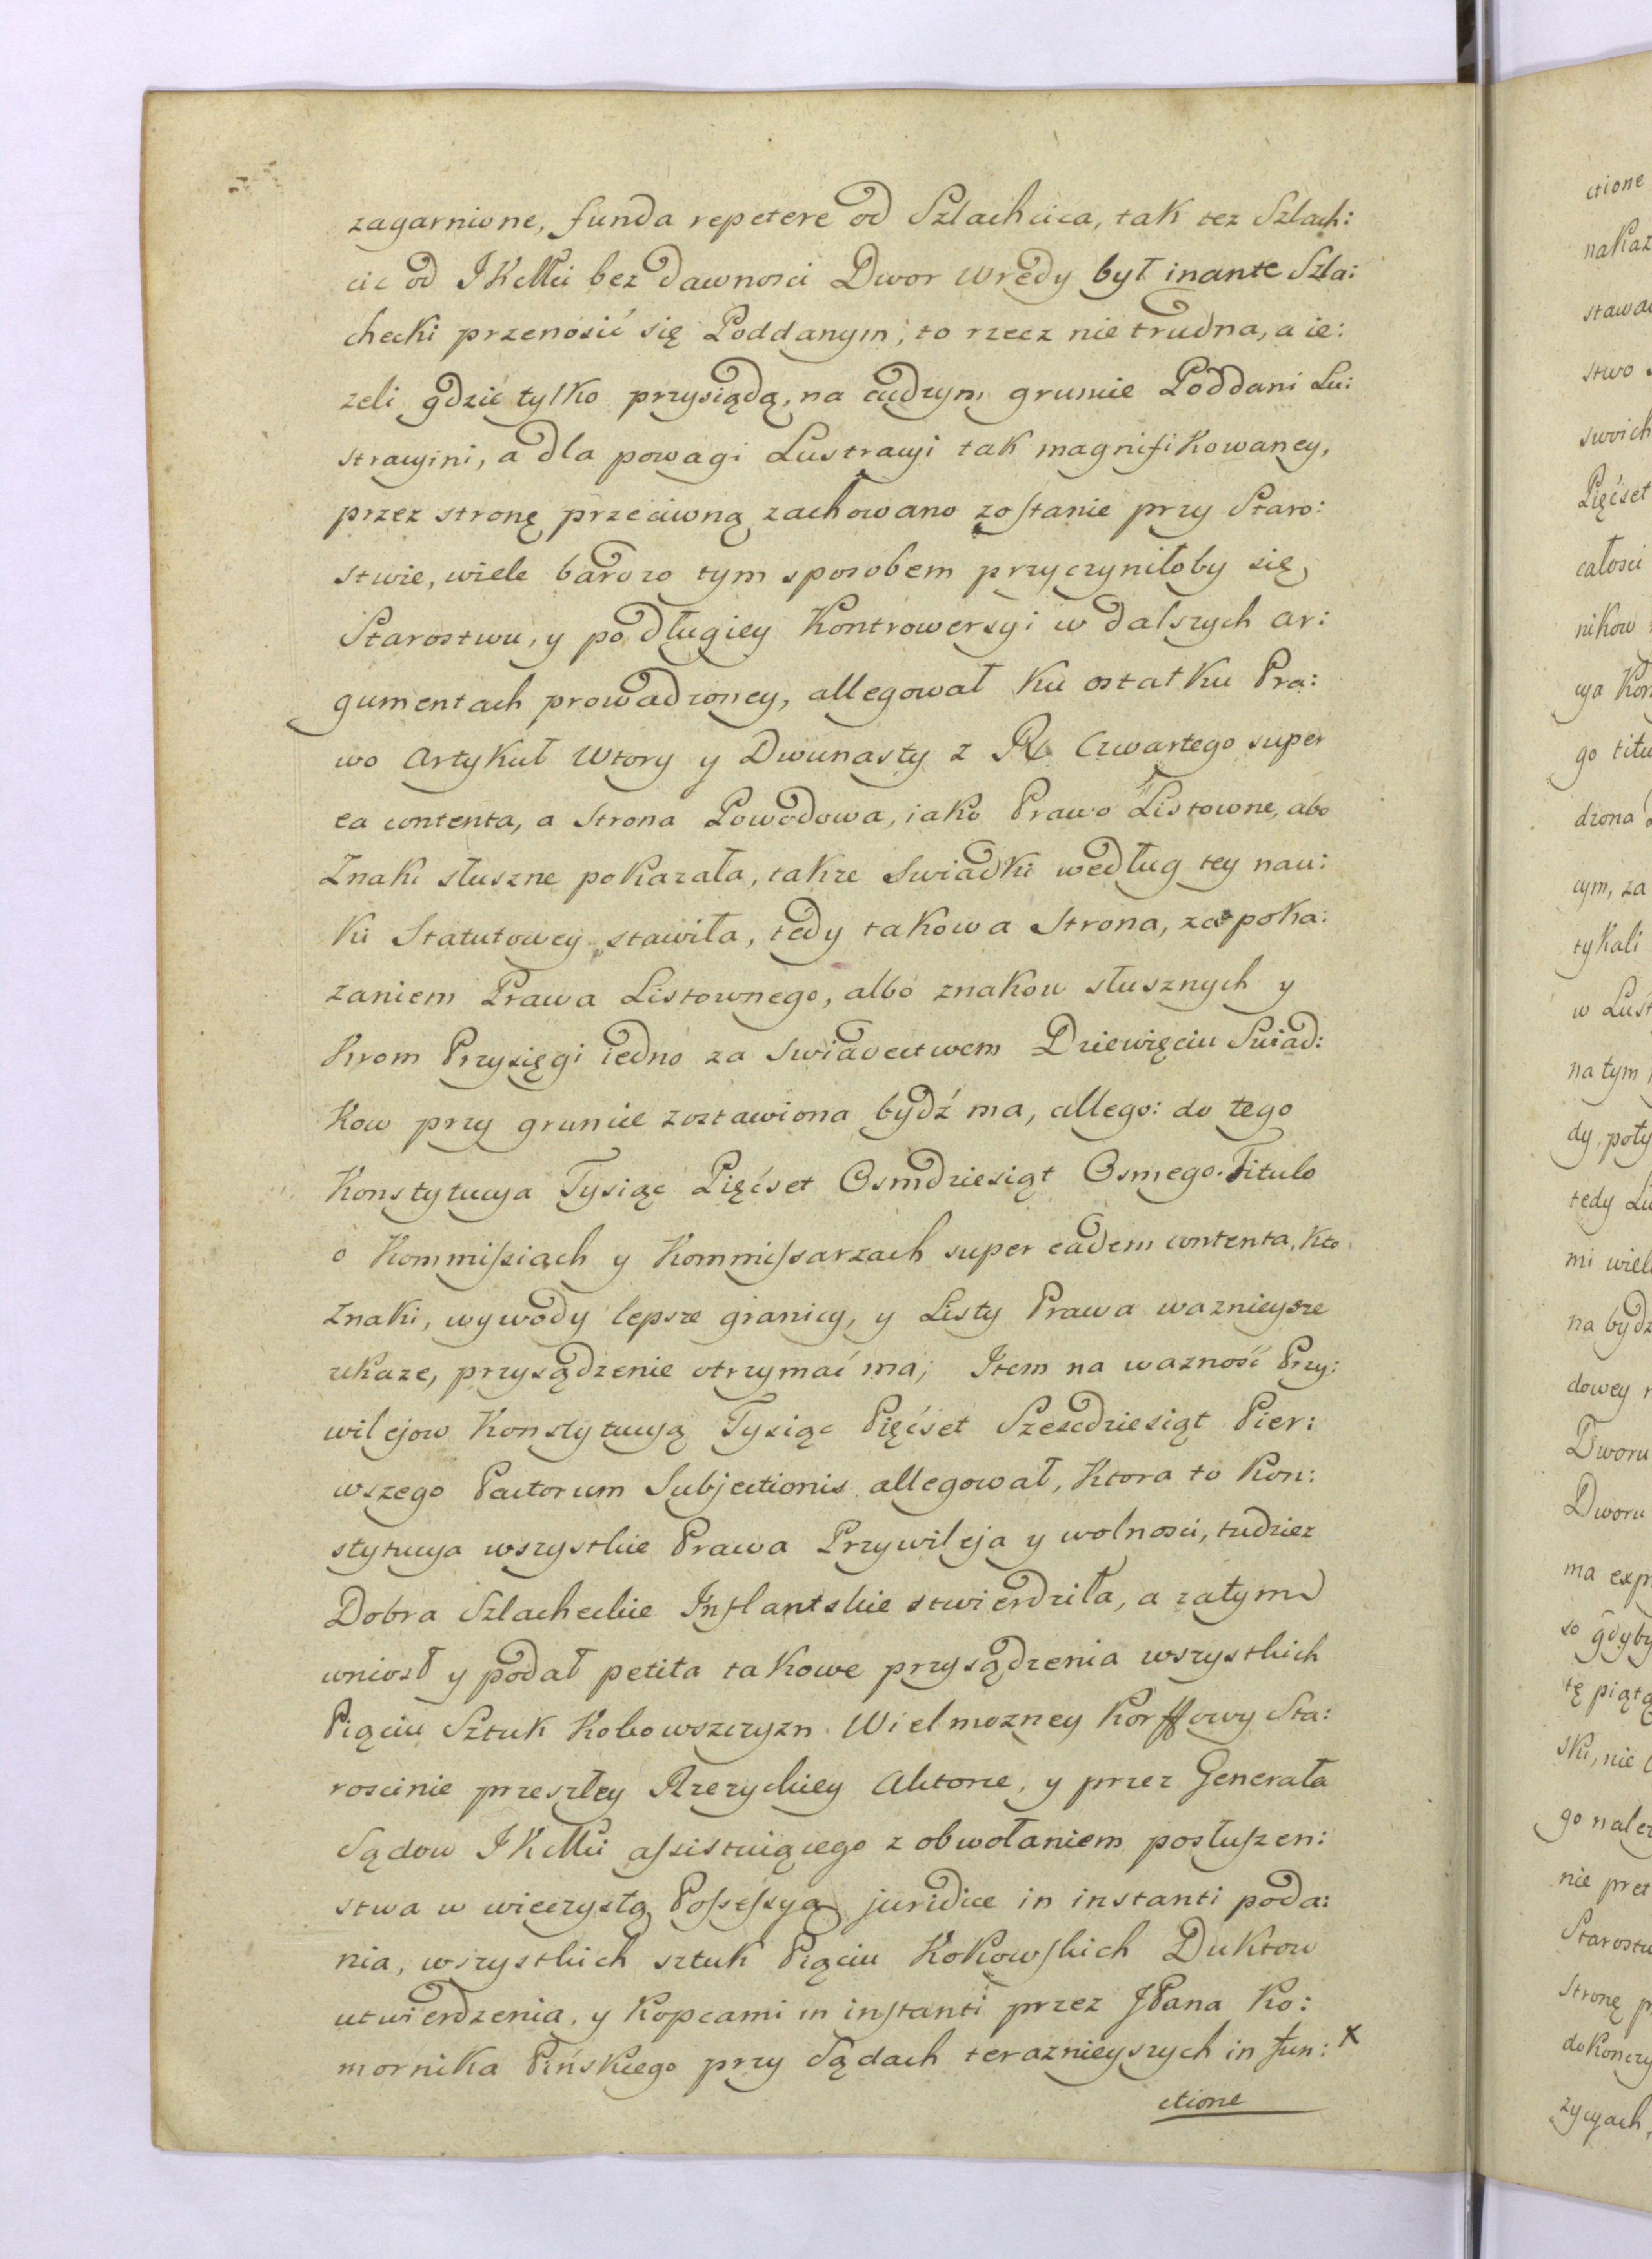 zagarnione, funda repetere od Szlachcica, tak tez Szlach:
cic od JKcMći bez dawnosci Dwor Wredy był inante Szla:
checki przenosić się Poddanym; to rzecz nie trudna, a ie:
zeli gdzie tylko przysiądą, na cudzym gruncie Poddani Lu:
stracyini, a dla powagi Lustracyi tak magnifikowaney,
przez stronę przeciwną zachowano zostanie przy Staro:
stwie, wiele bardzo tym sposobem przyczyniłoby się,
Starostwu, y po długiey Kontrowersyi w dalszych ar:
gumentach prowadzoney, allegował ku ostatku Pra:
wo Artykuł Wtory y Dwunasty z Rₒ Czwartego super
ea contenta, a Strona Powodowa, iako Prawo Listowne, abo
Znaki słuszne pokazała, takze Swiadki według tey nau:
ki Statutowey stawiła, tedy takowa Strona, za poka:
zaniem Prawa Listownego, albo znakow słusznych y
krom Przysięgi iedno za Swiadectwem Dziewięciu Swiad:
kow przy gruncie zostawiona bydź ma, allego: do tego
Konstytucya Tysiąc Pięćset Osmdziesiąt Osmego. Titulo
o Kommissiach y Kommissarzach super eadem contenta, kto
Znaki, wywody lepsze granicy, y Listy Prawa waznieysze
ukaze, przysądzenie otrzymać ma; Item na wazność Przy:
wilejow Konstytucyą Tysiąc Pięćset Szescdziesiąt Pier:
wszego Pactorum Subjectionis allegował, ktora to Kon:
stytucya wszystkie Prawa Przywileja y wolnosci, tudziez
Dobra Szlacheckie Inflantskie stwierdziła, a zatym
wniosł y podał petita takowe przysądzenia wszystkich
Pięciu Sztuk Kobowszczyzn Wielmozney Korffowy Sta:
roscinie przeszłey Rzezyckiey Aktorce, y przez Generała
Sądow JKcMći assistuiącego z obwołaniem posłuszen:
stwa w wieczystą Possessyą juridice in instanti poda:
nia, wszystkich sztuk Pięciu Kokowskich Duktow
utwierdzenia, y Kopcami in instanti przez JPana Ko:
mornika Pińskiego przy Sądach teraznieyszych in fun: x
ctione
ctione
nakaz
swoich
Pięćset
całosci
nikow
cym, za
tykali
na tym
tedy
dowey
Dworu
Dworu
ma
nie
Stronę